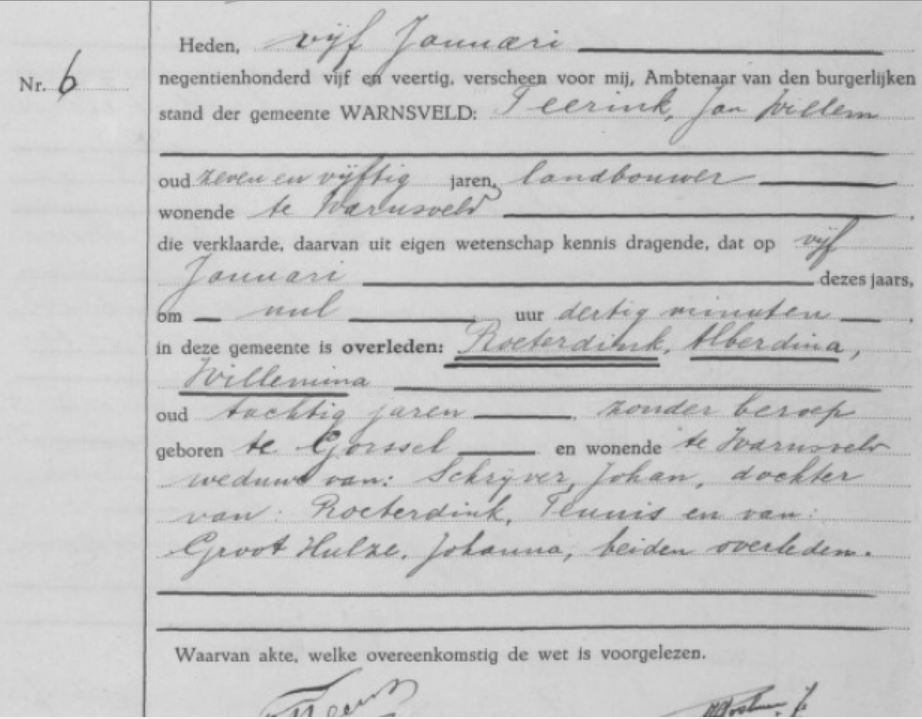 Heden, vijf Januari
Nr. 6
negentienhonderd vijf en veertig, verscheen voor mij, Ambtenaar van den burgerlijken
stand der gemeente WARNSVELD: Teerink, Jan Willem
oud zeven en vijftig jaren, landbouwer
wonende te Warnsveld
die verklaarde, daarvan uit eigen wetenschap kennis dragende, dat op vijf
Januari dezes jaars,
om nul uur dertig minuten
in deze gemeente is overleden: Roeterdink, Alberdina,
Willemina
oud tachtig jaren, zonder beroep
geboren te Gorssel en wonende te Warnsveld
weduwe van: Schrijver, Johan, dochter
van: Roeterdink, Teunis en van:
Groot Hulze, Johanna, beiden overleden.
Waarvan akte, welke overeenkomstig de wet is voorgelezen.